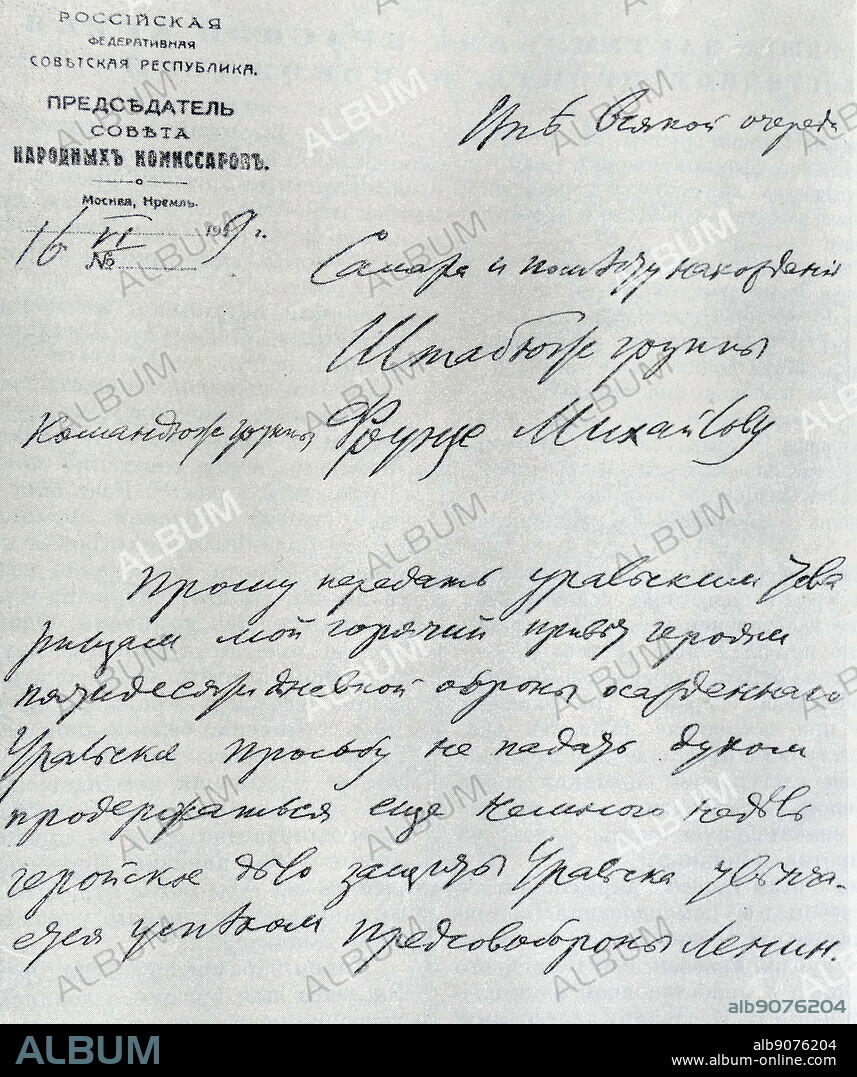 РОССІЙСКАЯ
ФЕДЕРАТИВНАЯ
СОВѢТСКАЯ РЕСПУБЛИКА.
ПРЕДСѢДАТЕЛЬ
СОВѢТА
НАРОДНЫХЪ КОМИССАРОВЪ.
Москва, Кремль.
16 VI 1919 г.
№
Внѣ всякой очереди
Самара и по мѣсту нахождения
Штабюжгруппы
Командюжгруппы Фрунзе Михайлову
Прошу передать уральским това
рищам мой горячий привѣт героям
пятидесятидневной обороны осажденнаго
Уральска просьбу не падать духом
продержаться еще немного недѣль
геройское дѣло защиты Уральска увѣнча-
ется успѣхом Предсовобороны Ленин.
ALBUM
alb9076204
ALBUM
alb9076204
www.album-online.com